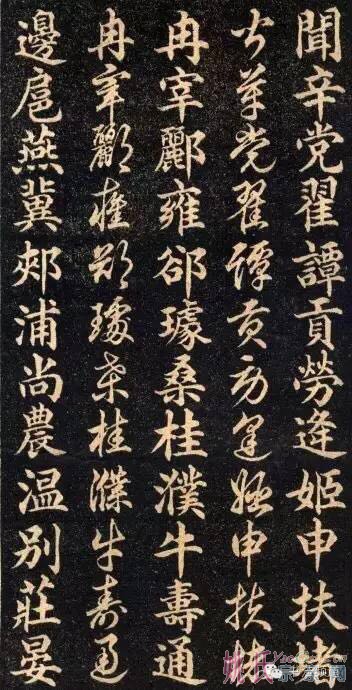 聞辛党翟譚貢勞逄姬申扶堵
聞辛党翟譚貢勞逄姬申扶堵
冉宰酈雍郤璩桑桂濮牛壽通
冉宰酈雍郤璩桑桂濮牛壽通
邊扈燕冀郟浦尚農温別莊晏